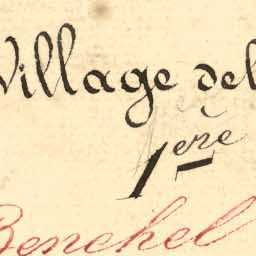 Village del
1ère
Benchel